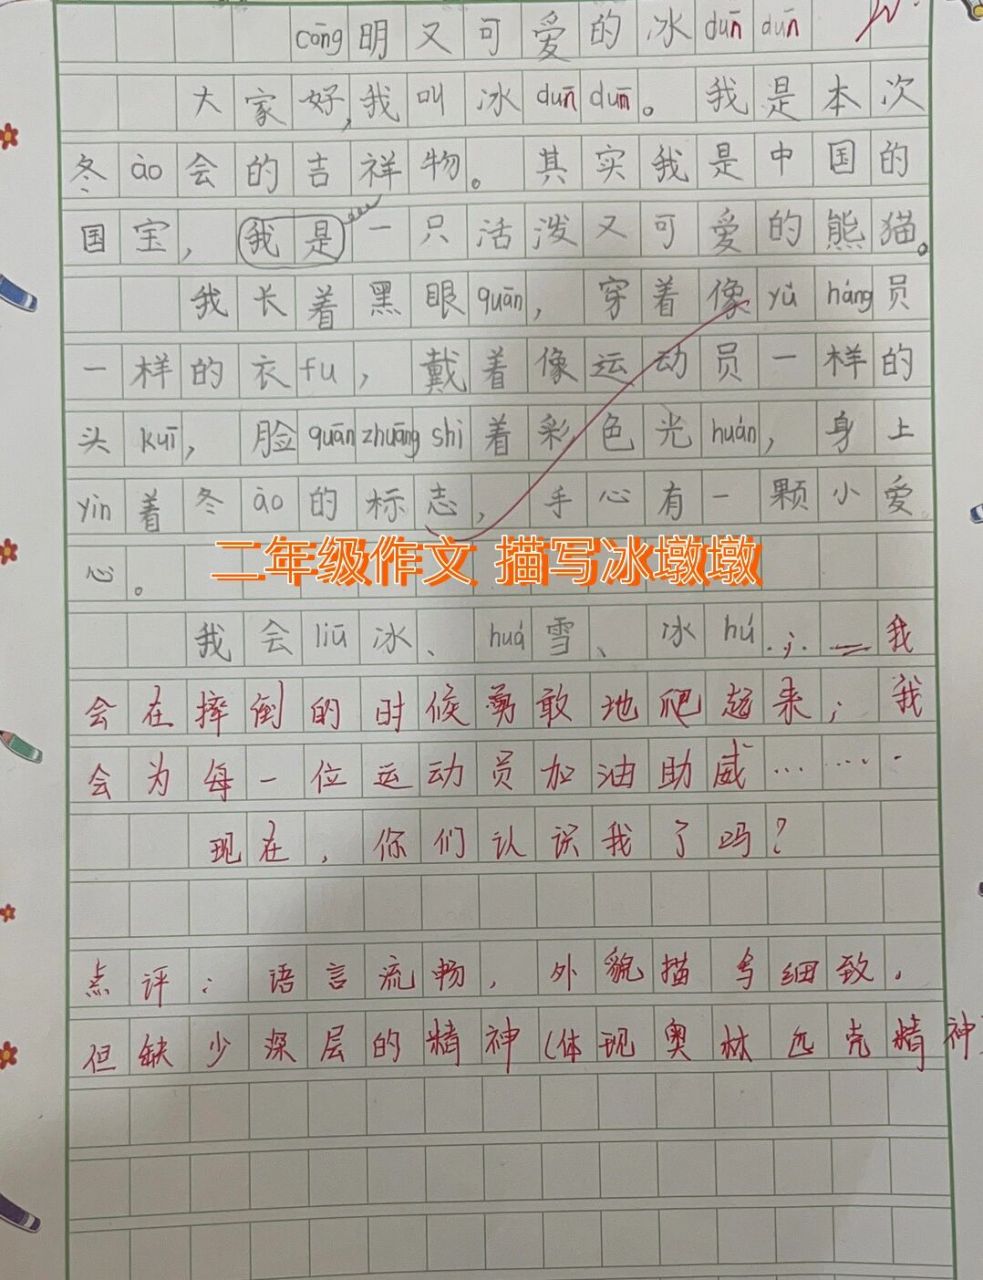 cōng明又可爱的冰dūn dūn
大家好,我叫冰dūn dūn。我是本次
冬ào会的吉祥物。其实我是中国的
国宝,我是一只活泼又可爱的熊猫。
我长着黑眼quān,穿着像yǔ háng员
一样的衣fu,戴着像运动员一样的
头kuī,脸quānzhuāng shì着彩色光huán,身上
yìn着冬ào的标志,手心有一颗小爱
二年级作文 描写冰墩墩
心。
我会liū冰、huá雪、冰hú.;.—我
会在摔倒的时候勇敢地爬起来;我
会为每一位运动员加油助威……
现在,你们认识我了吗?
点评:语言流畅,外貌描写细致.
但缺少深层的精神(体现奥林匹克精神)